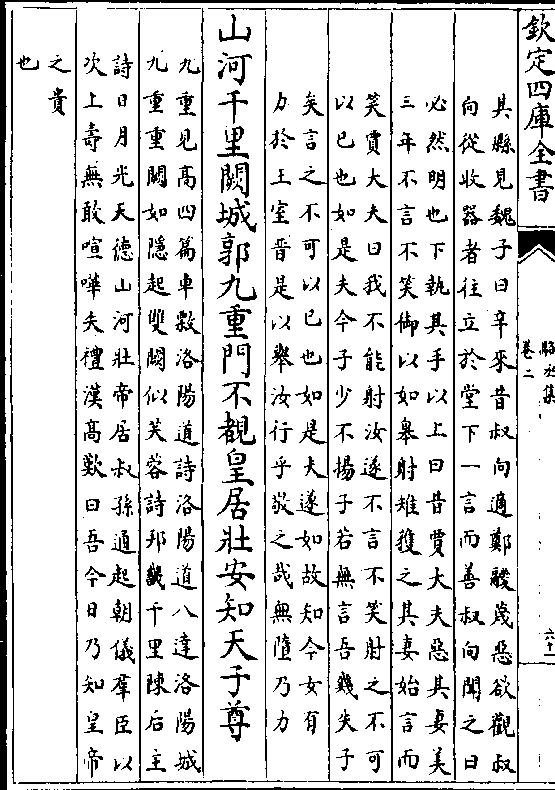 欽定四庫全書
卷二
其縣見魏子曰辛來昔叔向適鄭鬷蔑惡欲觀叔
向從收器者往立於堂下一言而善叔向聞之曰
必然明也下執其手以上曰昔賈大夫惡其妻美
三年不言不笑御以如皋射雉獲之其妻始言而
笑賈大夫曰我不能射汝遂不言不笑射之不可
以已也如是夫今子少不揚子若無言吾幾失子
矣言之不可以已也如是夫遂如故知今女有
力於王室吾是以舉汝行乎敬之哉無墮乃力
山河千里闕城郭九重門不覩皇居壯安知天子尊
九重見髙四篇車轂洛陽道詩洛陽道八達洛陽城
九重重闕如隱起雙闕似芙蓉詩邦畿千里陳后主
詩日月光天德山河壯帝居叔孫通起朝儀羣臣以
次上壽無敢喧嘩失禮漢髙歎曰吾今日乃知皇帝
之貴
也